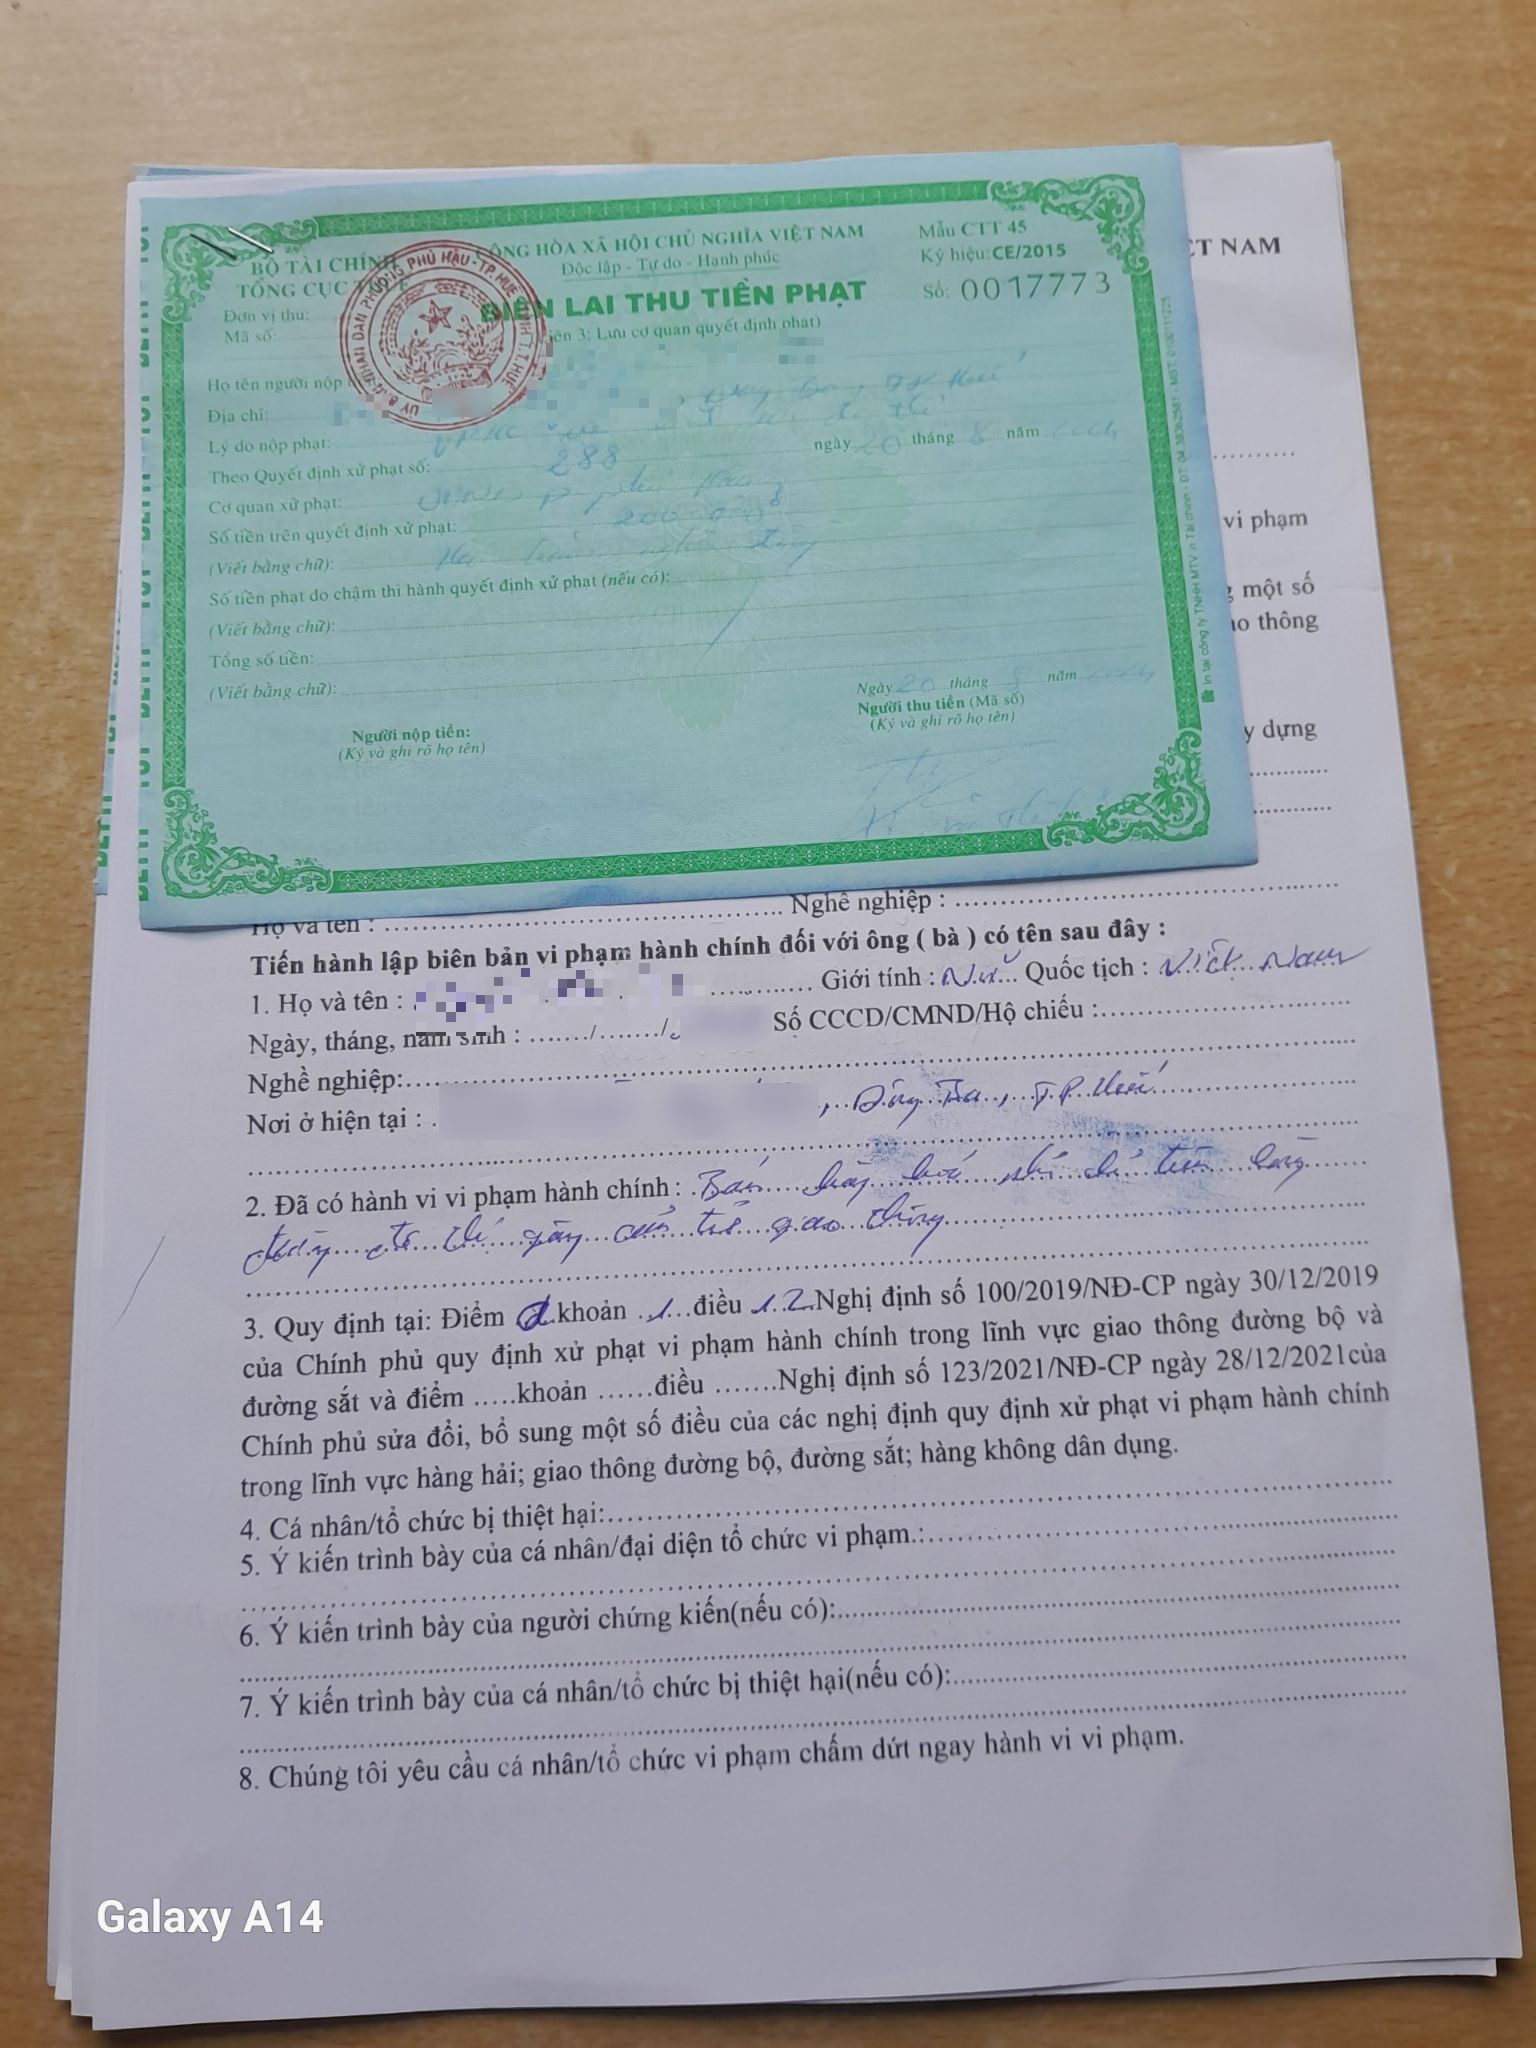 BỘ TÀI CHÍNH
TỔNG CỤC THUẾ
Đơn vị thu:
Mã số:
CỘNG HÒA XÃ HỘI CHỦ NGHĨA VIỆT NAM
Độc lập - Tự do - Hạnh phúc
BIÊN LAI THU TIỀN PHẠT
(Liên 3: Lưu cơ quan quyết định phạt)
Mẫu CTT 45
Ký hiệu: CE/2015
Số: 0017773
ỦY BAN NHÂN DÂN PHƯỜNG PHÚ HẬU - TP. HUẾ TỈNH T.T. HUẾ
Họ tên người nộp
Địa chỉ: TP Huế
Lý do nộp phạt:
Theo Quyết định xử phạt số: 288 ngày 20 tháng 8 năm 2024
Cơ quan xử phạt: UBND P. Phú Hậu
Số tiền trên quyết định xử phạt: 200.000đ
(Viết bằng chữ): Hai trăm nghìn đồng
Số tiền phạt do chậm thi hành quyết định xử phạt (nếu có):
(Viết bằng chữ):
Tổng số tiền:
(Viết bằng chữ):
Ngày 20 tháng 8 năm 2024
Người nộp tiền:
(Ký và ghi rõ họ tên)
Người thu tiền (Mã số)
(Ký và ghi rõ họ tên)
In tại công ty TNHH MTV In Tài chính - ĐT: 04.38362581 - MST: 0100111225
ỆT NAM
vi phạm
một số
ao thông
y dựng
Họ và tên : Nghề nghiệp :
Tiến hành lập biên bản vi phạm hành chính đối với ông ( bà ) có tên sau đây :
1. Họ và tên : Giới tính : Nữ Quốc tịch : Việt Nam
Ngày, tháng, năm sinh : ....../......./ Số CCCD/CMND/Hộ chiếu :
Nghề nghiệp:
Nơi ở hiện tại : , Đông Ba, TP Huế
2. Đã có hành vi vi phạm hành chính : Bán hàng hoá nhỏ lẻ trên lòng
đường đô thị gây cản trở giao thông
3. Quy định tại: Điểm a khoản 1 điều 12 Nghị định số 100/2019/NĐ-CP ngày 30/12/2019
của Chính phủ quy định xử phạt vi phạm hành chính trong lĩnh vực giao thông đường bộ và
đường sắt và điểm .....khoản ......điều .......Nghị định số 123/2021/NĐ-CP ngày 28/12/2021của
Chính phủ sửa đổi, bổ sung một số điều của các nghị định quy định xử phạt vi phạm hành chính
trong lĩnh vực hàng hải; giao thông đường bộ, đường sắt; hàng không dân dụng.
4. Cá nhân/tổ chức bị thiệt hại:
5. Ý kiến trình bày của cá nhân/đại diện tổ chức vi phạm.:
6. Ý kiến trình bày của người chứng kiến(nếu có):
7. Ý kiến trình bày của cá nhân/tổ chức bị thiệt hại(nếu có):
8. Chúng tôi yêu cầu cá nhân/tổ chức vi phạm chấm dứt ngay hành vi vi phạm.
Galaxy A14